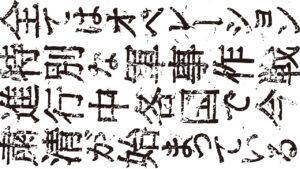 全てはオペレーション
特別な軍事作戦
進行中各国で今
粛清が始まっている